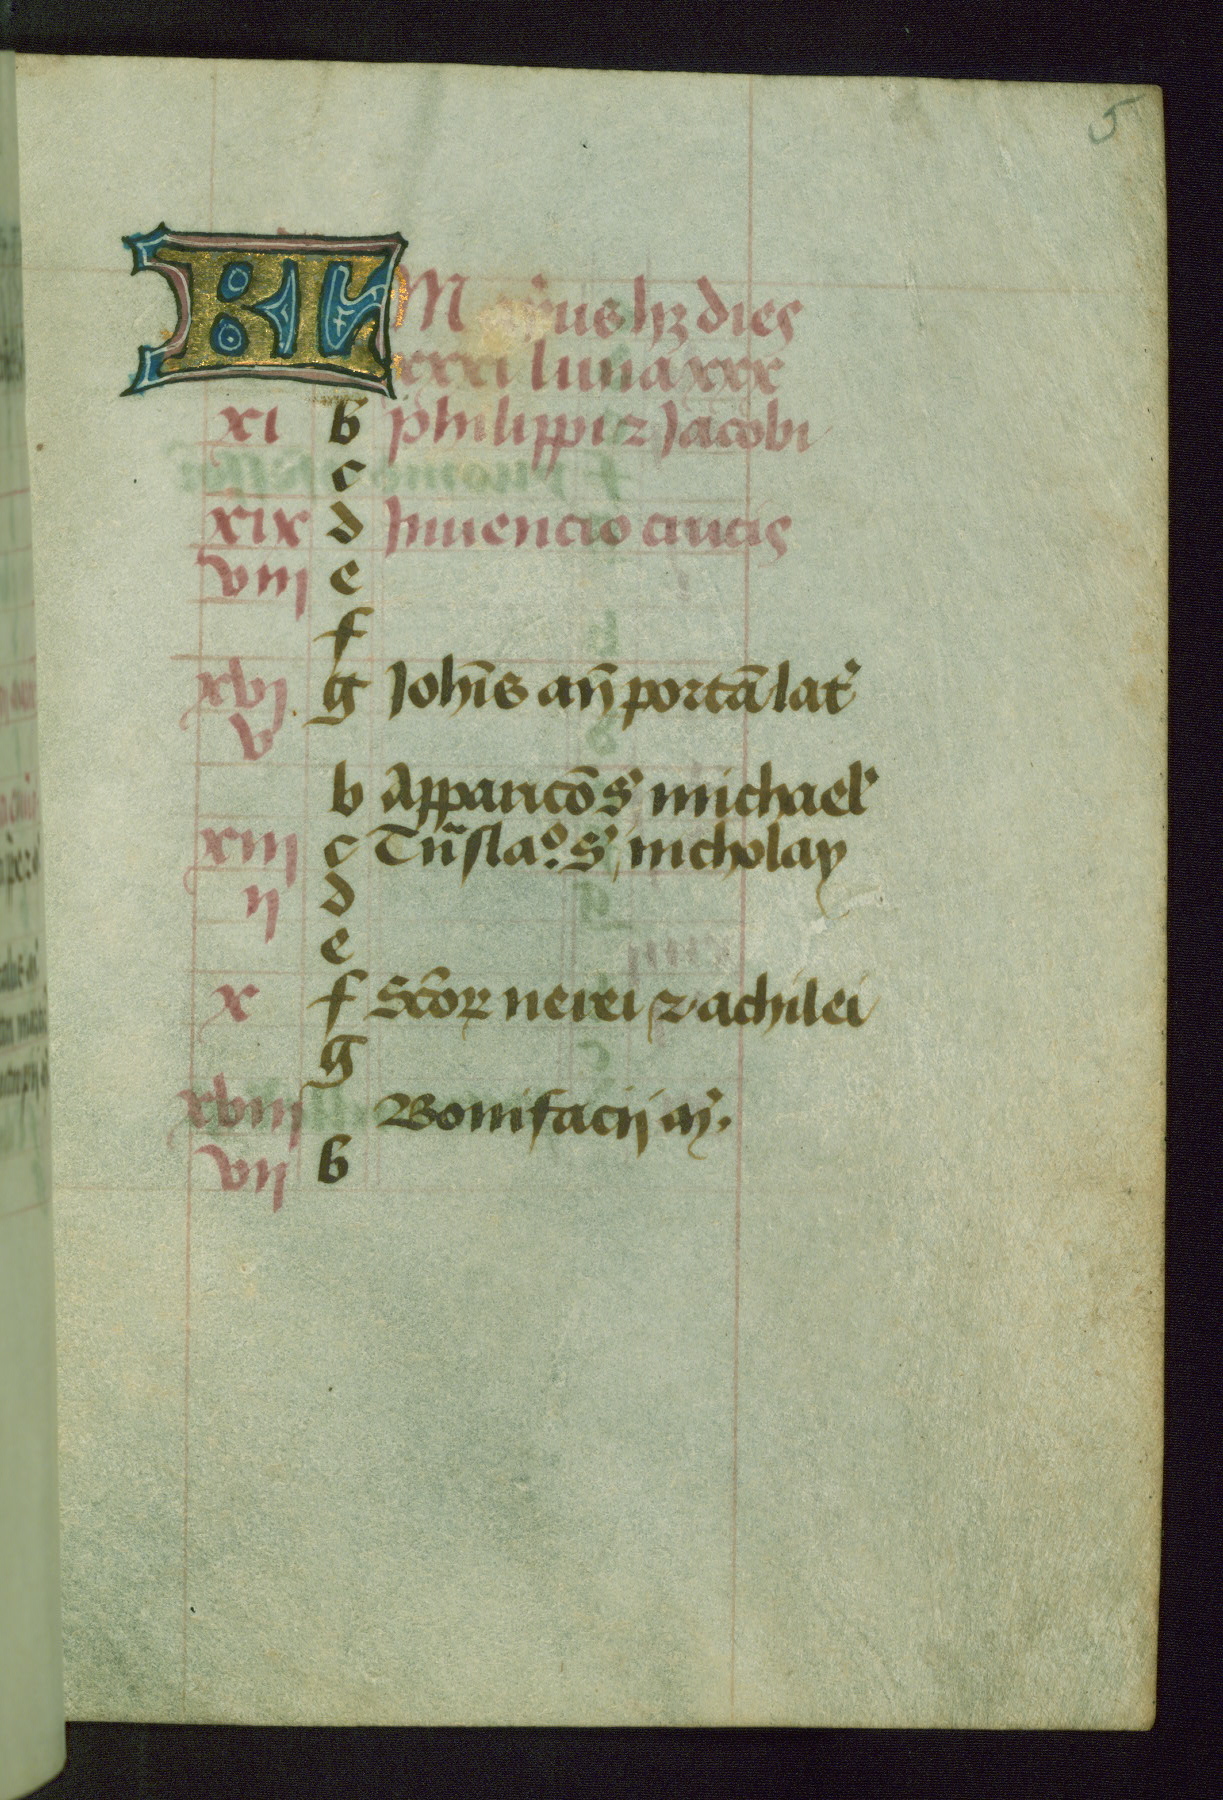 5
KL Maius hꝫ dies
xxxi luna xxx
xi b philippi ⁊ Jacobi
c
xix d Inuencio crucis
viii e
f
xvj g Joh̄is an̄ portā lat'
v
b Apparicōs' michael'
xiij c Tn̄slaº. s' nicholay
ij d
e
x f Sc̄oꝝ nerei ⁊ achilei
g
xviij Bonifacij m̄'.
vij b